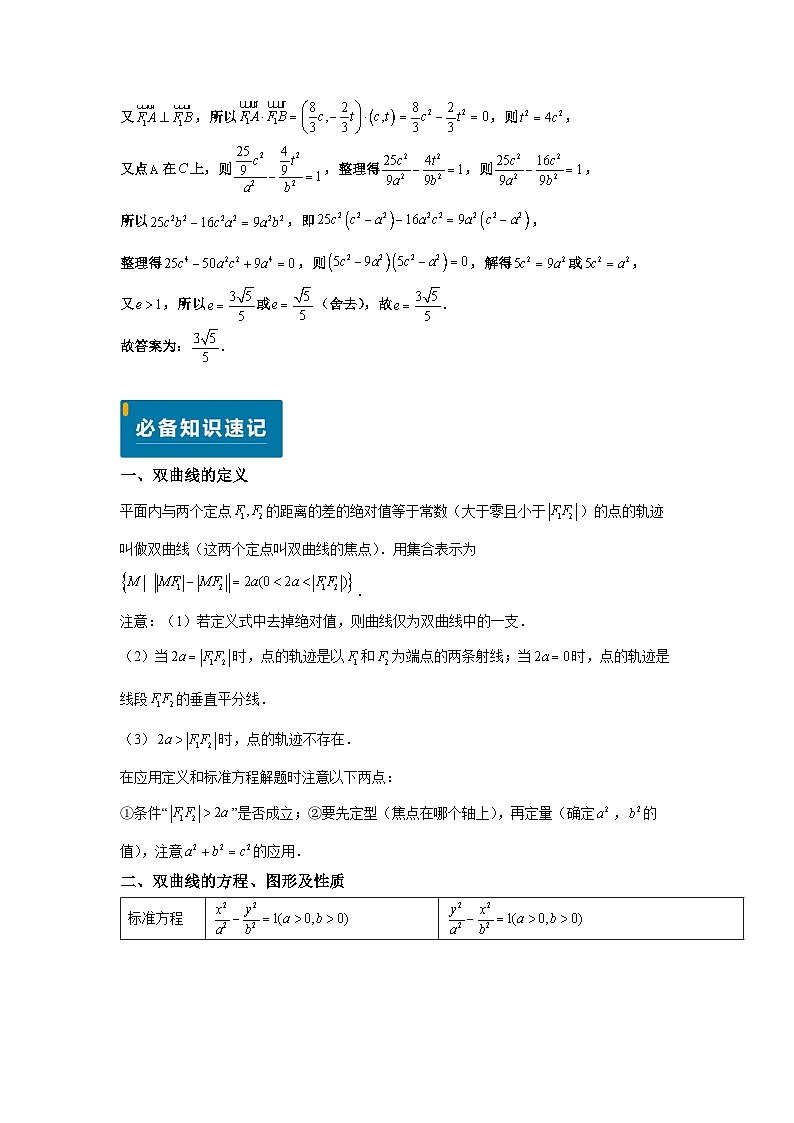 又$\overrightarrow{F_1A} \perp \overrightarrow{F_1B}$，所以$\overrightarrow{F_1A} \cdot \overrightarrow{F_1B} = \left(\frac{8}{3}c, -\frac{2}{3}t\right) \cdot (c,t) = \frac{8}{3}c^2 - \frac{2}{3}t^2 = 0$，则$t^2 = 4c^2$，
又点A在$C$上，则$\frac{\frac{25}{9}c^2}{a^2} - \frac{\frac{4}{9}t^2}{b^2} = 1$，整理得$\frac{25c^2}{9a^2} - \frac{4t^2}{9b^2} = 1$，则$\frac{25c^2}{9a^2} - \frac{16c^2}{9b^2} = 1$，
所以$25c^2b^2 - 16c^2a^2 = 9a^2b^2$，即$25c^2(c^2 - a^2) - 16a^2c^2 = 9a^2(c^2 - a^2)$，
整理得$25c^4 - 50a^2c^2 + 9a^4 = 0$，则$(5c^2 - 9a^2)(5c^2 - a^2) = 0$，解得$5c^2 = 9a^2$或$5c^2 = a^2$，
又$e > 1$，所以$e = \frac{3\sqrt{5}}{5}$或$e = \frac{\sqrt{5}}{5}$（舍去），故$e = \frac{3\sqrt{5}}{5}$．
故答案为：$\frac{3\sqrt{5}}{5}$．
必备知识速记
一、双曲线的定义
平面内与两个定点$F_1, F_2$的距离的差的绝对值等于常数（大于零且小于$|F_1F_2|$）的点的轨迹
叫做双曲线（这两个定点叫双曲线的焦点）．用集合表示为
$\{M | \ ||MF_1| - |MF_2|| = 2a(0 < 2a < |F_1F_2|)\}$．
注意：（1）若定义式中去掉绝对值，则曲线仅为双曲线中的一支．
（2）当$2a = |F_1F_2|$时，点的轨迹是以$F_1$和$F_2$为端点的两条射线；当$2a = 0$时，点的轨迹是
线段$F_1F_2$的垂直平分线．
（3）$2a > |F_1F_2|$时，点的轨迹不存在．
在应用定义和标准方程解题时注意以下两点：
①条件“$|F_1F_2| > 2a$”是否成立；②要先定型（焦点在哪个轴上），再定量（确定$a^2$，$b^2$的
值），注意$a^2 + b^2 = c^2$的应用．
二、双曲线的方程、图形及性质
标准方程 $\frac{x^2}{a^2} - \frac{y^2}{b^2} = 1(a > 0, b > 0)$ $\frac{y^2}{a^2} - \frac{x^2}{b^2} = 1(a > 0, b > 0)$